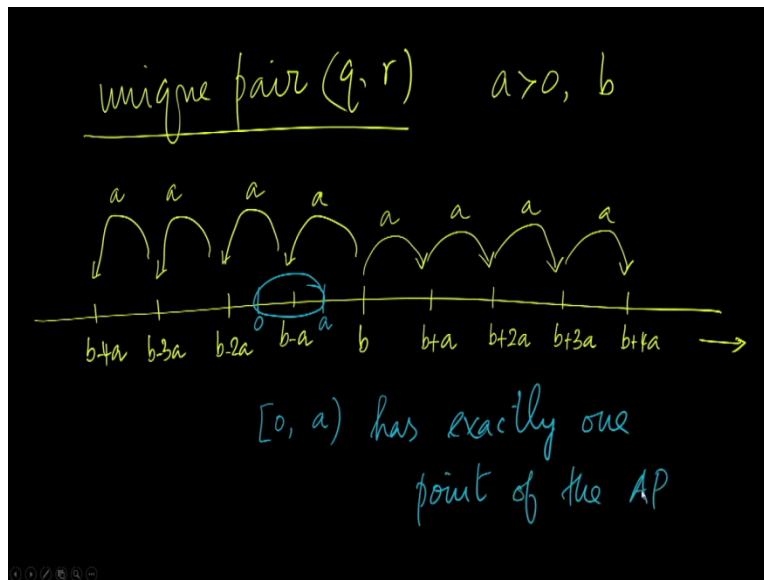 unique pair (q, r) a>0, b
a a a a a a a a
0 a
b-4a b-3a b-2a b-a b b+a b+2a b+3a b+4a
[0, a) has exactly one
point of the AP